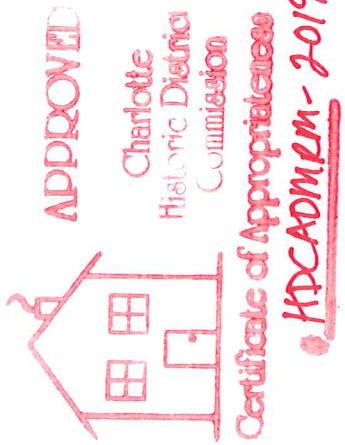 APPROVED
Charlotte
Historic District
Commission
Certificate of Appropriateness
# HDCADMRM-2019